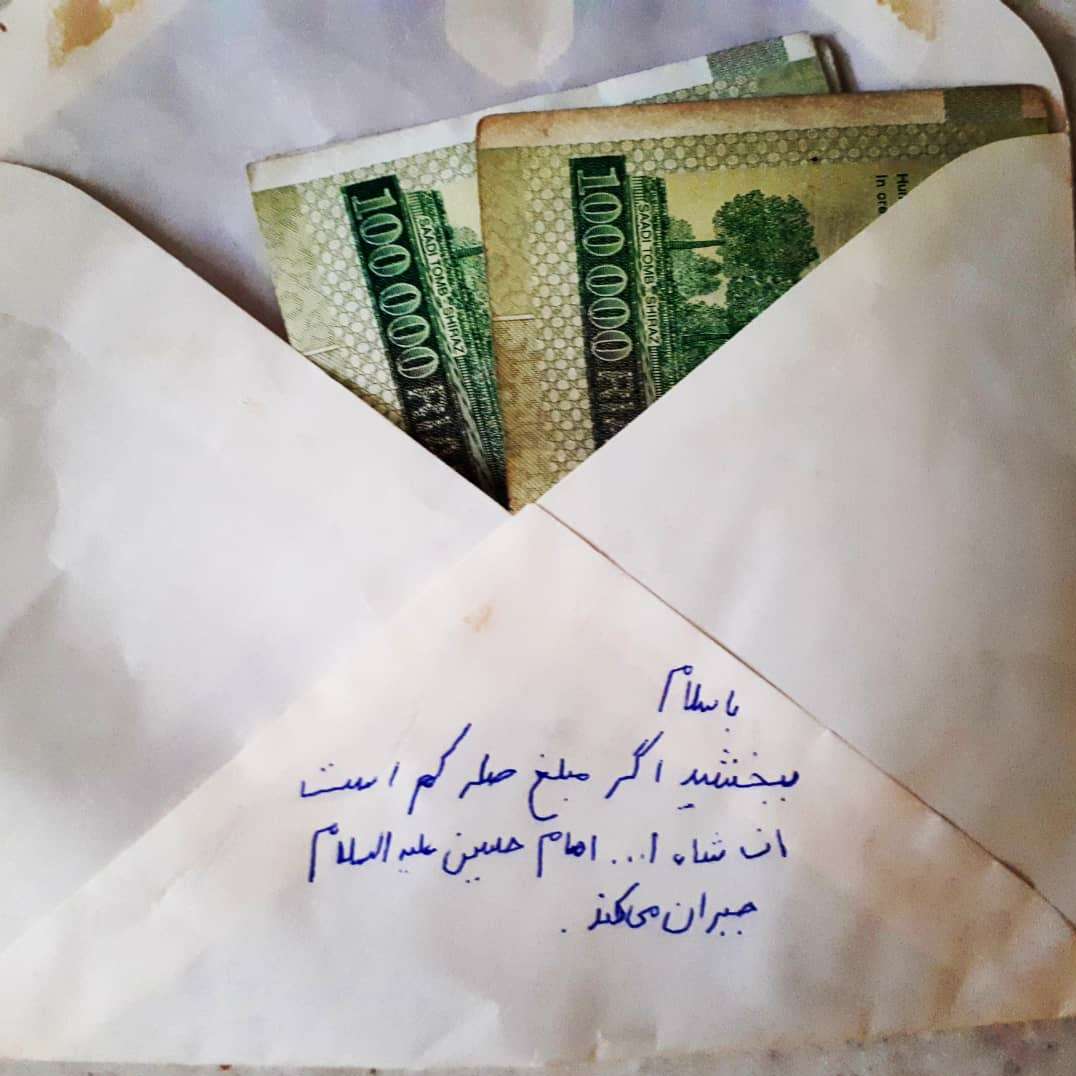 100000 RIA
SAADI TOMB • SHIRAZ
100000 RIA
SAADI TOMB • SHIRAZ
با سلام
ببخشید اگر مبلغ صله کم است
ان شاء ا... امام حسین علیه السلام
جبران می‌کند.